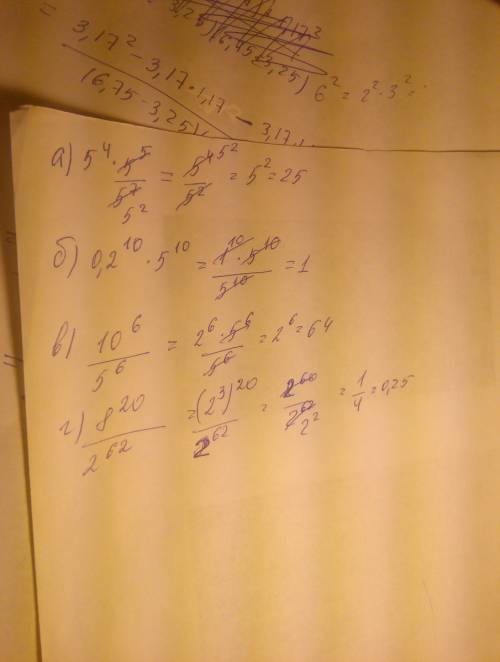 3,17² - 3,17 · 1,17
(6,75 - 3,25)
6² = 2² · 3² =
- 3,17
а) 5⁴ · 5⁵/5⁷ = 5⁴5²/5² = 5² = 25
5²
б) 0,2¹⁰ · 5¹⁰ = 1¹⁰ · 5¹⁰/5¹⁰ = 1
в) 10⁶/5⁶ = 2⁶ · 5⁶/5⁶ = 2⁶ = 64
г) 8²⁰/2⁶² = (2³)²⁰/2⁶² = 2⁶⁰/2⁶² = 1/4 = 0,25
2²